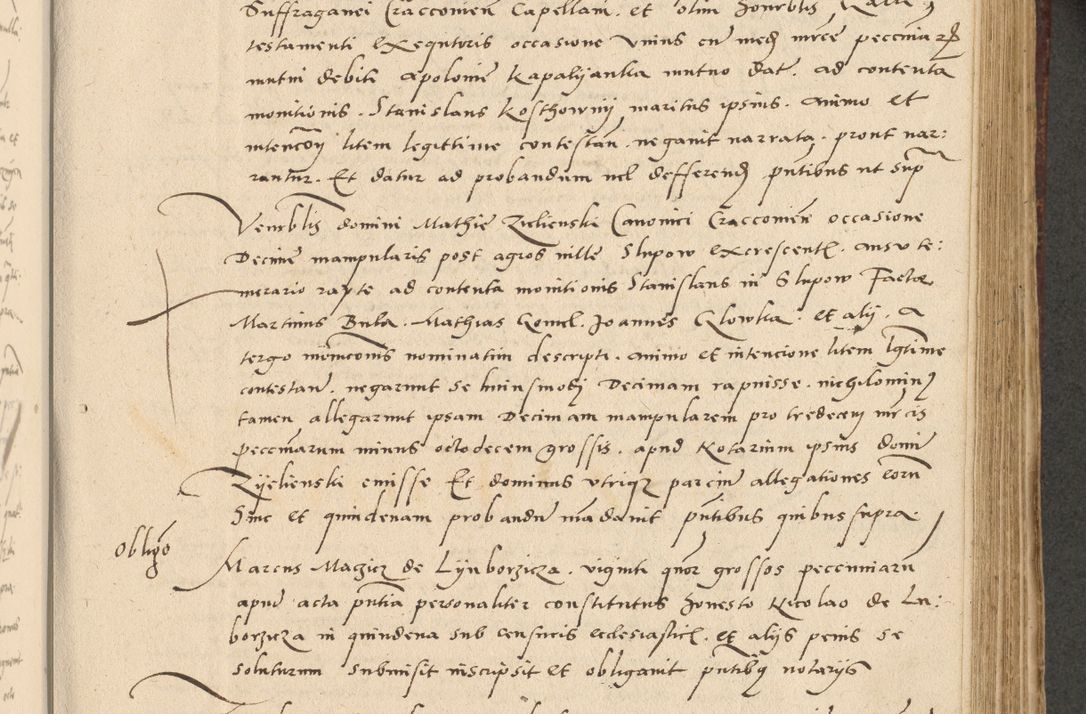 Suffraganei Cracconien Capellani . et olim honrblis
testamenti exequtoris occasione unius cu med mrce peccuniar
mutui debiti Apolonie Kapalijanka mutuo dat . ad contenta
monitionis . Stanislaus Kosthownij maritus ipsius . animo et
intencoij litem legittime contestan . negauit narrata . prout nar:
rantur . Et datur ad probandum uel defferend pntibus ut sup
Venrblis domini Mathie Zielienski Canonici Cracconien occasione
Decime manipularis post agros uille Slupow excrescent . ausu te:
merario rapte ad contenta monitionis Stanislaus in Slupow Factor
Martinus Bula . Mathias Gomel . Joannes Glowka . et alij . a
tergo nominatim descripti . animo et intencione litem lgtime
contestan . negarunt se huiusmodi Decimam rapuisse . nichilominus
tamen allegarunt ipsam Decimam manipularem pro tredecem mrcis
peccuniarum minus octodecem grossis . apud Notarium ipsius domi
Zijelienski emisse Et dominus utriq parcium allegationes eoru
Hinc et quindenam probandu madauit pntibus quibus supra .
Obligo
Marcus Magier de Lijnborzicza . viginti quor grossos peccuniaru
apud acta pntia personaliter constitutus honesto Nicolao de Lu:
borzicza in quindena sub censuris ecclesiastic . et alijs penis se
soluturum submisit inscripsit et obligauit pntibq notarijs